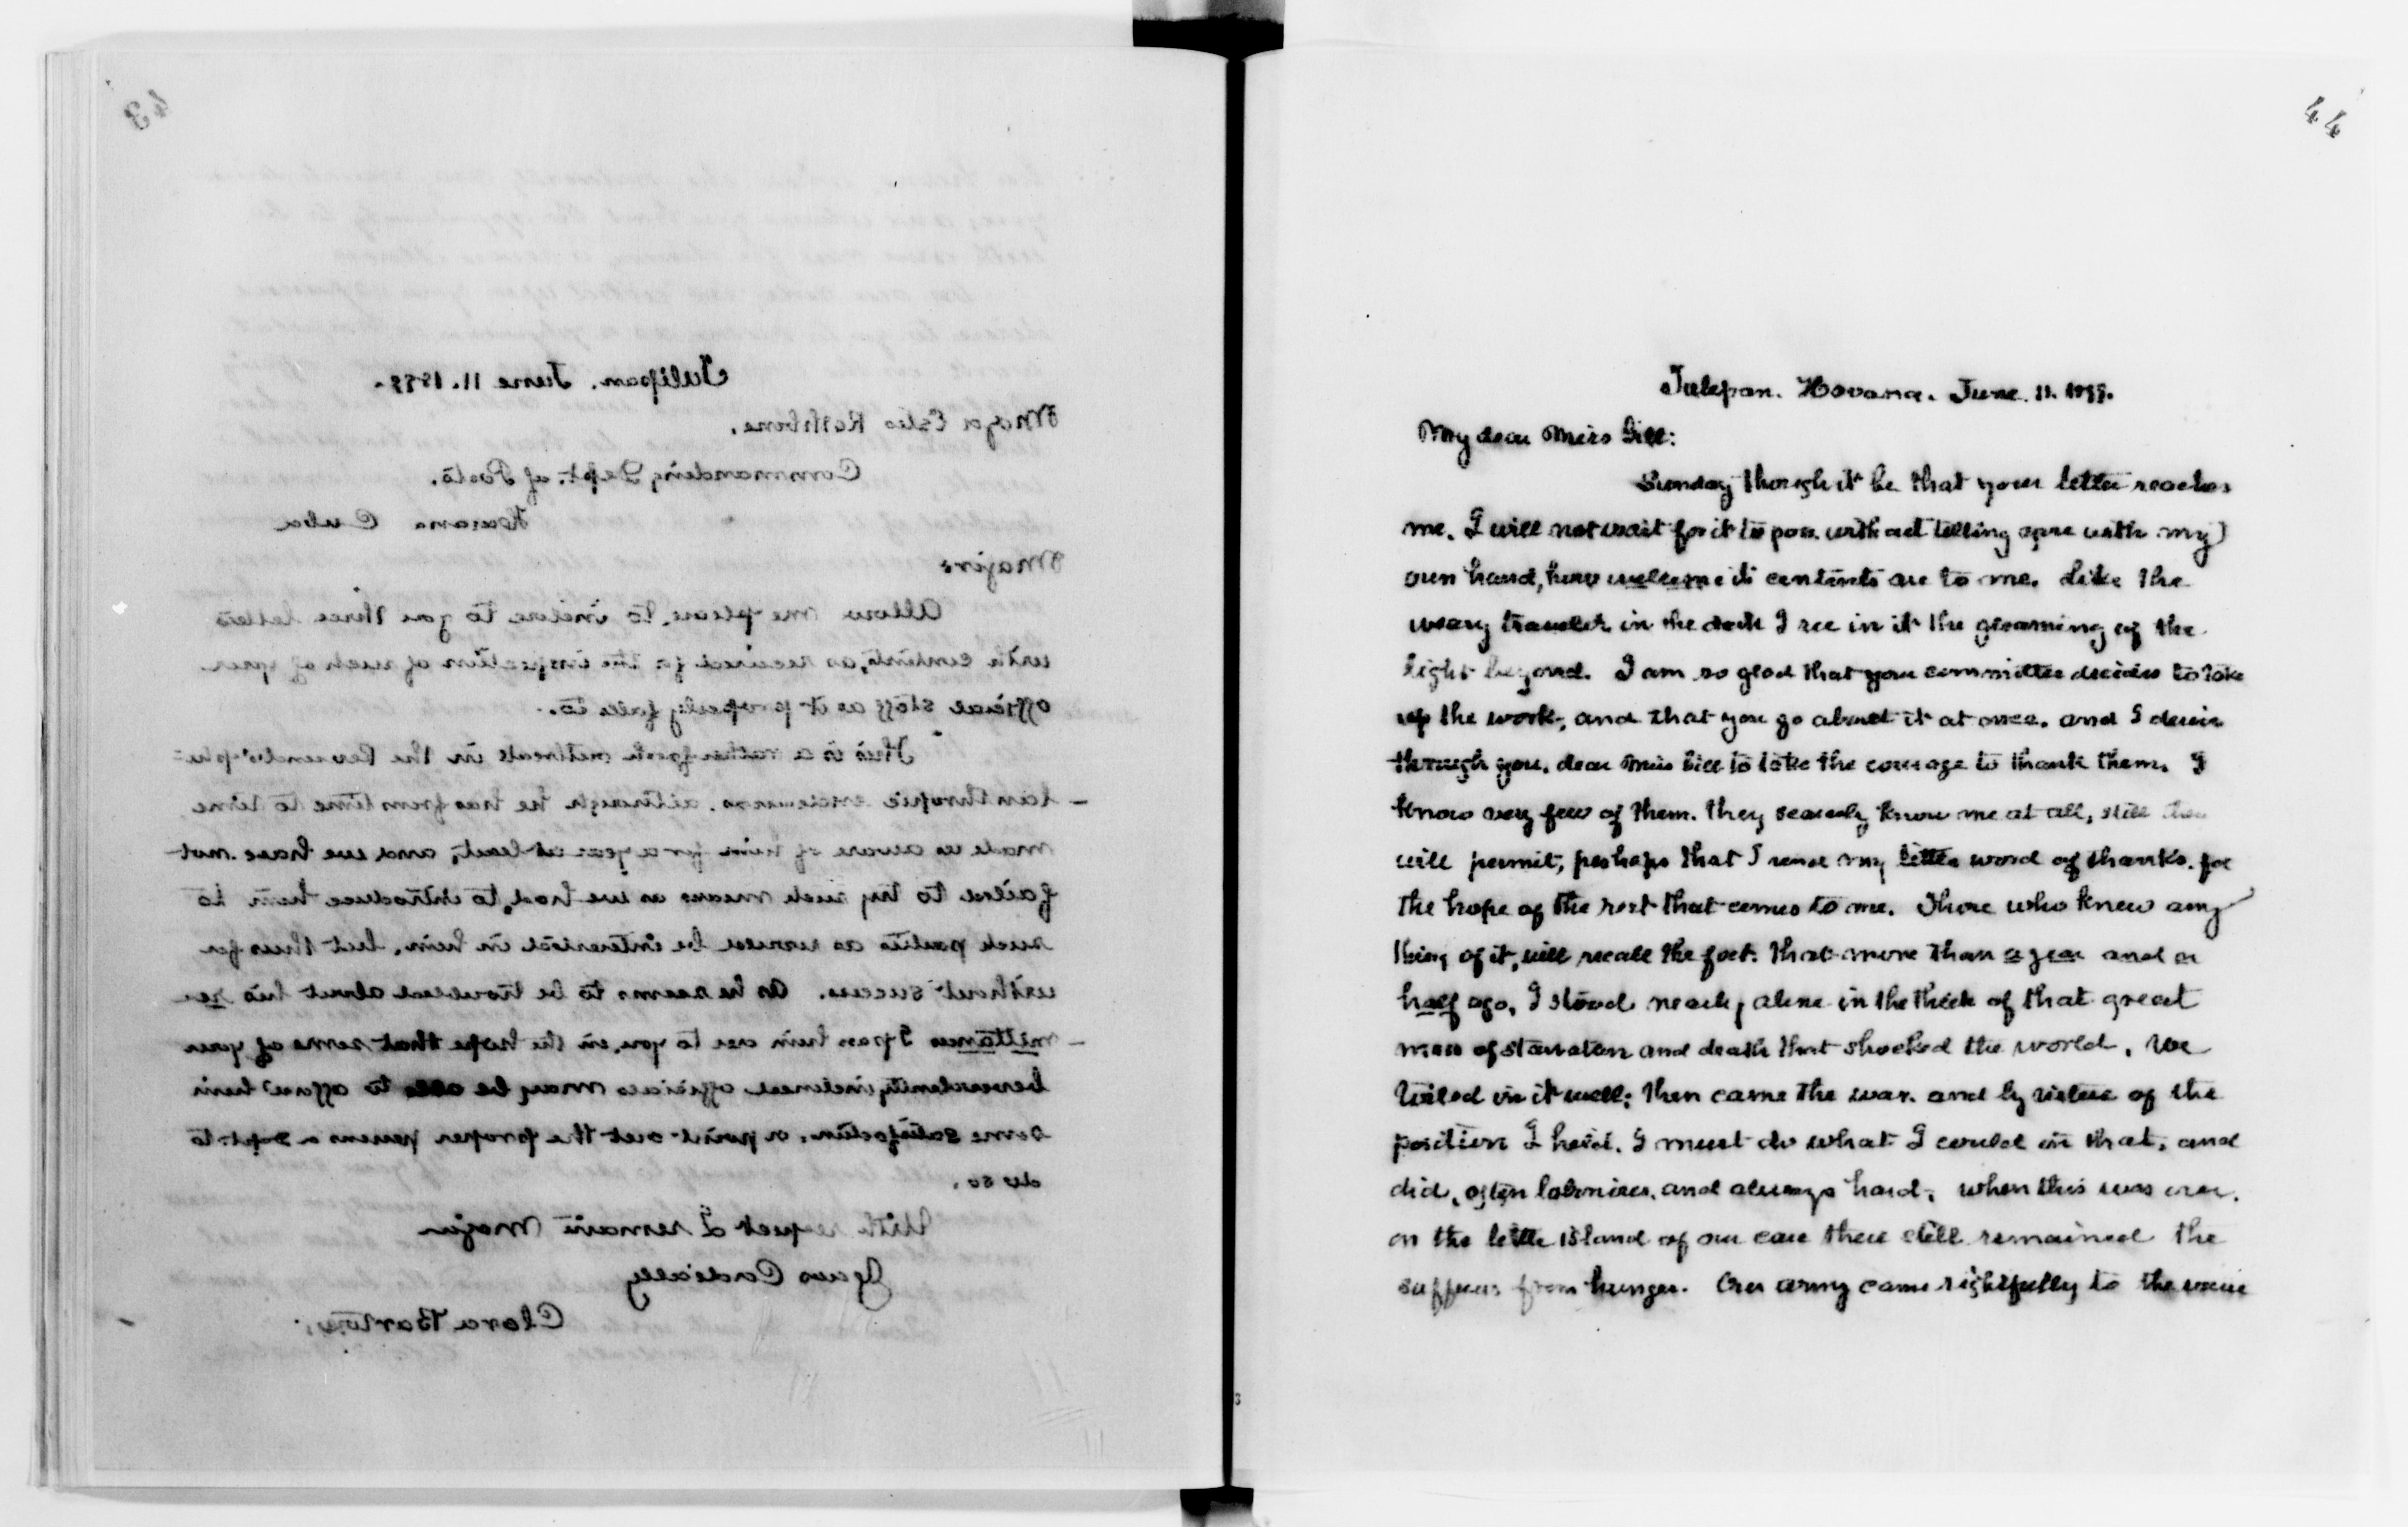 43
Tulipan. June 11. 1899.
Major Estes Rathbone.
Commanding Dept. of Posts.
Havana Cuba
Major:
Allow me please, to inclose to you three letters
with contents, as received for the inspection of such of your
official staff as it properly falls to.
This is a rather fresh outbreak in the Reverend's phi-
lanthropic, although he has from time to time
made us aware of him for a year at least, and we have not
failed to try such means as we had, to introduce him to
such parties as would be interested in him, but thus far
without success. As he seems to be troubled about his re-
mittances I pass him over to you, in the hope that some of your
benevolently inclined officials may be able to afford him
some satisfaction, or point out the proper person or Dept. to
do so.
With respect I remain Major
Yours Cordially
Clara Barton.
44
Tulipan. Havana. June. 11. 1899.
My dear Miss Gill:
Sunday though it be that your letter reaches
me, I will not wait for it to pass without telling you with my
own hand, how welcome its contents are to me. Like the
weary traveler in the dark I see in it the gleaming of the
light beyond. I am so glad that your committee decides to take
up the work, and that you go about it at once, and I desire
through you, dear Miss Gill to take the courage to thank them. I
know very few of them. they scarcely know me at all, still they
will permit, perhaps that I send my little word of thanks. for
the hope of the rest that comes to me. Those who knew any
thing of it, will recall the fact. that more than a year and a
half ago, I stood nearly alone in the thick of that great
mass of starvation and death that shocked the world. We
toiled in it well; then came the war. and by virtue of the
position I held. I must do what I could in that, and
did, often laborious, and always hard, when this was over.
on the little island of our care there still remained the
sufferers from hunger. Our army came rightfully to the rescue